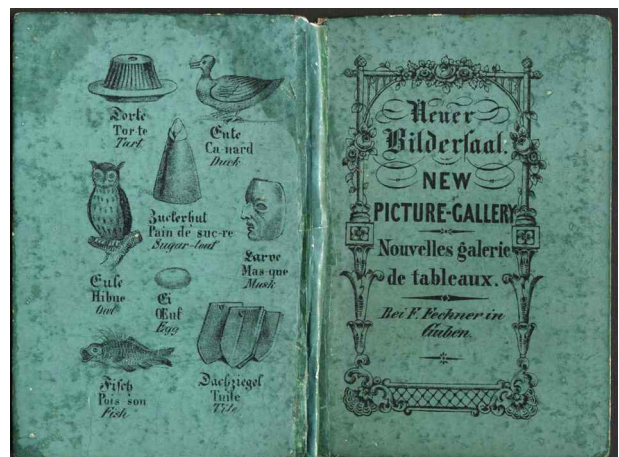 Torte
Tor-te
Tart
Ente
Ca-nard
Duck
Zuckerhut
Pain de suc-re
Sugar-louf
Larve
Mas-que
Musk
Eule
Hibue
Owl
Ei
Œuf
Egg
Fisch
Pois-son
Fish
Dachziegel
Tuile
Tyle
Neuer
Bildersaal.
NEW
PICTURE-GALLERY
Nouvelles galerie
de tableaux.
Bei F. Fechner in
Guben.